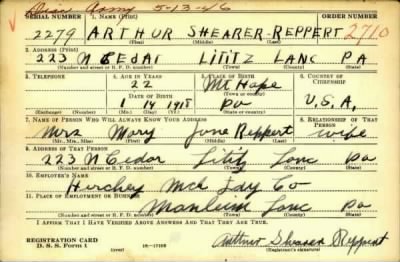 Dis Army 5-13-46
SERIAL NUMBER 1. NAME (Print) ORDER NUMBER
2279 ARTHUR SHEARER-REPPERT 2710
(First) (Middle) (Last)
2. ADDRESS (Print)
223 N CEDAR LITITZ LANC PA
(Number and street or R. F. D. number) (Town) (County) (State)
3. TELEPHONE 4. AGE IN YEARS 5. PLACE OF BIRTH 6. COUNTRY OF CITIZENSHIP
22 Mt Hope
DATE OF BIRTH (Town or county)
1 14 1918 Pa U.S.A.
(Exchange) (Number) (Mo.) (Day) (Yr.) (State or country)
7. NAME OF PERSON WHO WILL ALWAYS KNOW YOUR ADDRESS 8. RELATIONSHIP OF THAT PERSON
Mrs Mary Jane Reppert wife
(Mr., Mrs., Miss) (First) (Middle) (Last)
9. ADDRESS OF THAT PERSON
223 N Cedar Lititz Lanc Pa
(Number and street or R. F. D. number) (Town) (County) (State)
10. EMPLOYER'S NAME
Hershey Mch Fdy Co
11. PLACE OF EMPLOYMENT OR BUSINESS
Manheim Lanc Pa
(Number and street or R. F. D. number) (Town) (County) (State)
I AFFIRM THAT I HAVE VERIFIED ABOVE ANSWERS AND THAT THEY ARE TRUE.
REGISTRATION CARD
D. S. S. Form 1 (over) 16-17105 Arthur Shearer Reppert
(Registrant's signature)